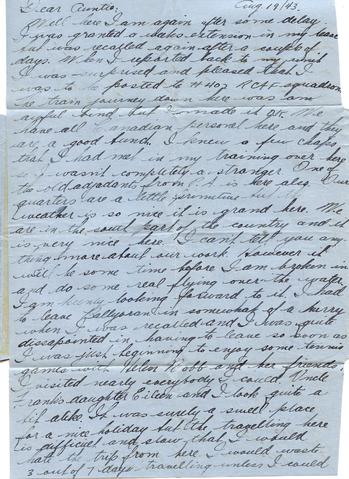 Dear Auntie: Aug 19/43.
Well here I am again after some delay.
I was granted a weeks extension in my leave
but was recalled again after a couple of
days. When I reported back to my unit
I was surprised and pleased that I
was to be posted to # 407 RCAF squadron
The train journey down here was an
awful bind but I made it OK. We
have all Canadian personel here and they
are a good bunch. I knew a few chaps
that I had met in my training over here
so I wasn't completely a stranger. One of
the old adjadants from is here also. Our
quarters are a little primitive but
weather is so nice it is grand here. We
are in the south part of the country and it
is very nice here. I can't tell you any
thing more about our work. However it
will be some time before I am broken in
and do some real flying over the water.
I am keenly looking forward to it. I had
to leave in somewhat of a hurry
when I was recalled and I was quite
dissapointed in having to leave so soon as
I was just beginning to enjoy some tennis
games with Robb and her friends.
I visited nearly everybody I could. Uncle
Franks daughter Eileen and I look quite a
bit alike. It was surely a swell place
for a nice holiday but the travelling here
is difficult and slow that I would
hate the trip from here. I would waste
3 out of 7 days travelling unless I could